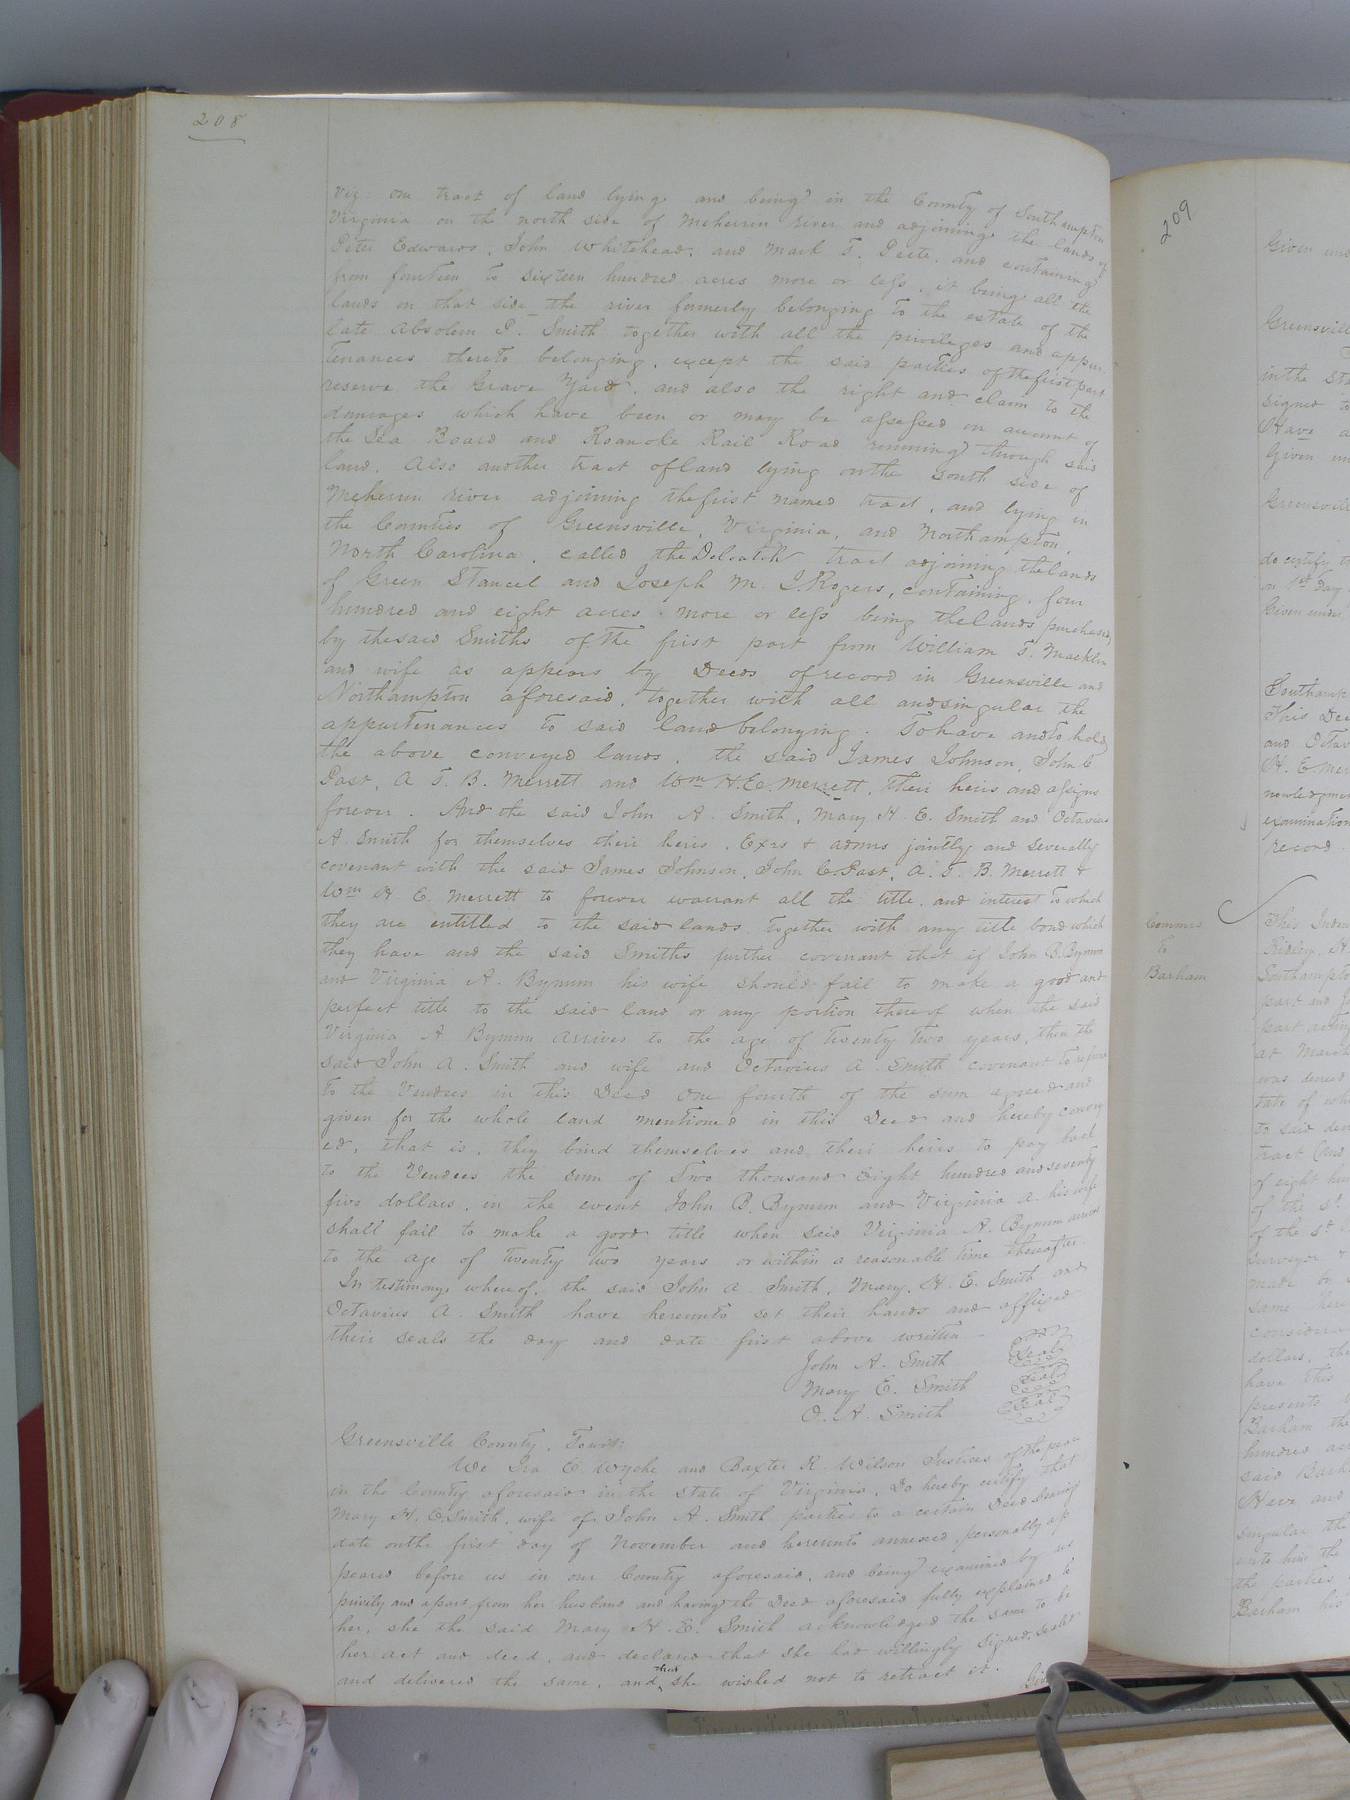 208
viz: one tract of land lying and being in the County of Southampton
Virginia on the north side of Meherrin river and adjoining the lands of
Peter Edwards, John Whitehead, and Mark T. Peete, and containing
from fourteen to sixteen hundred acres more or less, it being all the
lands on that side the river formerly belonging to the estate of the
late Absolem P. Smith together with all the privileges and appur-
tenances thereto belonging, except the said parties of the first part
reserve the Grave Yard, and also the right and claim to the
damages which have been or may be assessed on account of
the Sea Board and Roanoke Rail Road running through said
land. Also another tract of land lying on the south side of
Meherrin river adjoining the first named tract, and lying in
the Counties of Greensville, Virginia, and Northampton,
North Carolina, called the Deloatch tract adjoining the lands
of Green Stancel and Joseph M. S. Rogers, containing four
hundred and eight acres more or less being the lands purchased
by the said Smiths of the first part from William T. Macklin
and wife as appears by Deeds of record in Greensville and
Northampton aforesaid, together with all and singular the
appurtenances to said land belonging. To have and to hold
the above conveyed lands, the said James Johnson, John C
Past, A. T. B. Merrett and Wm H. E. Merrett, their heirs and assigns
forever. And the said John A. Smith, Mary H. E. Smith and Octavius
A. Smith for themselves their heirs, Exrs & admrs jointly and severally
covenant with the said James Johnson, John C. Past, A. T. B. Merrett &
Wm H. E. Merrett to forever warrant all the title, and interest to which
they are entitled to the said lands together with any title bond which
they have and the said Smiths further covenant that if John B. Bynum
and Virginia A. Bynum his wife should fail to make a good and
perfect title to the said land or any portion thereof when the said
Virginia A Bynum arrives to the age of twenty two years, then the
said John A. Smith and wife and Octavius A. Smith covenant to refund
to the Vendees in this Deed one fourth of the sum agreed and
given for the whole land mentioned in this Deed and hereby convey
ed, that is, they bind themselves and their heirs to pay back
to the Vendees the sum of Two thousand Eight hundred and seventy
five dollars, in the event John B. Bynum and Virginia A. his wife
shall fail to make a good title when said Virginia A. Bynum arrives
to the age of twenty two years or within a reasonable time thereafter.
In testimony whereof, the said John A. Smith, Mary. H. E. Smith and
Octavius A. Smith have hereunto set their hands and affixed
their seals the day and date first above written
John A. Smith Seal
Mary E. Smith Seal
O. A. Smith Seal
Greensville County, Towit:
We Ira E. Wyche and Baxter R. Wilson Justices of the peace
in the County aforesaid in the state of Virginia, Do hereby certify that
Mary H. E. Smith, wife of John A. Smith parties to a certain Deed bearing
date on the first day of November and hereunto annexed, personally ap
peared before us in our County aforesaid, and being examined by us
privily and apart from her husband and having the Deed aforesaid fully explained to
her, she the said Mary H. E. Smith acknowledged the same to be
her act and deed, and declared that she had willingly signed, sealed
and delivered the same, and that she wished not to retract it.
209
Given und
Greensvill
in the St
signed to
Have a
Given un
Greensvill
do certify t
on 1st day
Given under
Southamp
This Dee
and Octav
H. E. Mer
nowledgmen
examination
record.
Commrs
To
Barham
This Inden
Ridley, H
Southampto
part and J
part acting
at March
was decreed
tate of wh
to said dec
tract land
of eight hun
of the sd
of the sd
surveyor &
made on
same here
considera
dollars, the
have this
presents
Barham the
hundred ac
said Barha
Have and
singular the
unto him the
the parties
Barham his